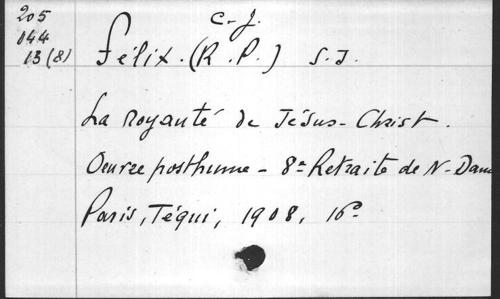 205
044
13 (8)
C. J.
Félix. (R. P.) S. J.
La royauté de Jésus-Christ.
Oeuvre posthume - 8e Retraite de N-Dame
Paris, Téqui, 1908, 16º